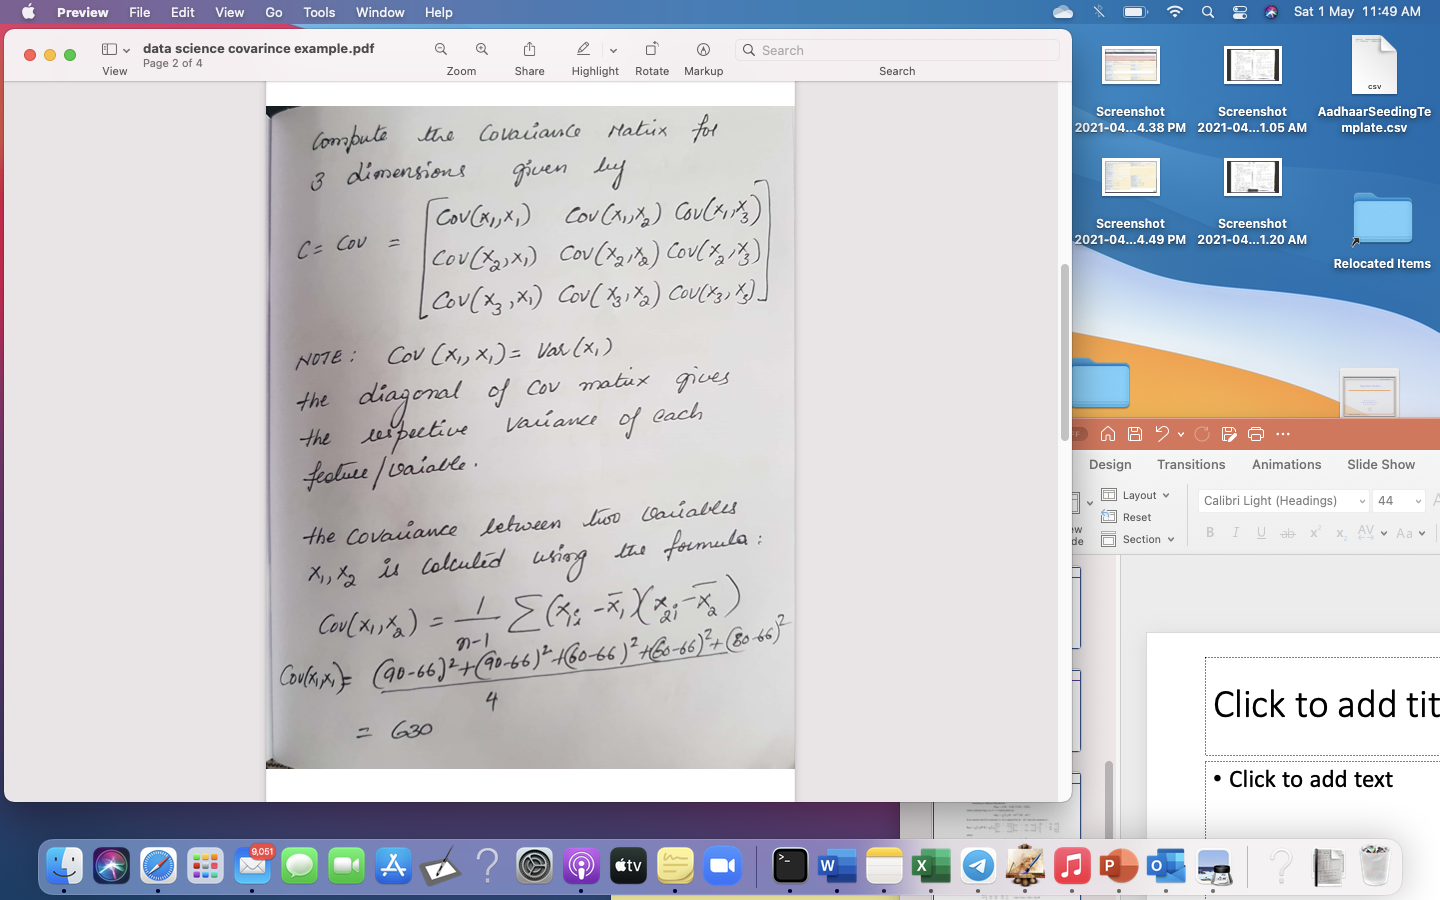 Preview File Edit View Go Tools Window Help
Sat 1 May 11:49 AM
data science covarince example.pdf
Page 2 of 4
View
Zoom
Share
Highlight
Rotate
Markup
Search
Search
Compute the Covariance Matrix for
3 dimensions given by
C = Cov = [Cov(x₁,x₁) Cov(x₁,x₂) Cov(x₁,x₃)
Cov(x₂,x₁) Cov(x₂,x₂) Cov(x₂,x₃)
Cov(x₃,x₁) Cov(x₃,x₂) Cov(x₃,x₃)]
NOTE: Cov(x₁,x₁) = Var(x₁)
the diagonal of Cov matrix gives
the respective variance of each
feature/variable.
the covariance between two variables
x₁,x₂ is calculated using the formula:
Cov(x₁,x₂) = 1/(n-1) Σ(x₁ᵢ - x̄₁)(x₂ᵢ - x̄₂)
Cov(x₁,x₁) = (90-66)²+(90-66)²+(60-66)²+(60-66)²+(80-66)²
4
= 630
Screenshot
2021-04...4.38 PM
Screenshot
2021-04...1.05 AM
AadhaarSeedingTe
mplate.csv
CSV
Screenshot
2021-04...4.49 PM
Screenshot
2021-04...1.20 AM
Relocated Items
Design Transitions Animations Slide Show
Layout
Reset
Section
Calibri Light (Headings) 44
B I U ab x² x₂ AV Aa
Click to add tit
• Click to add text
9,051
tv
W
X
P
O